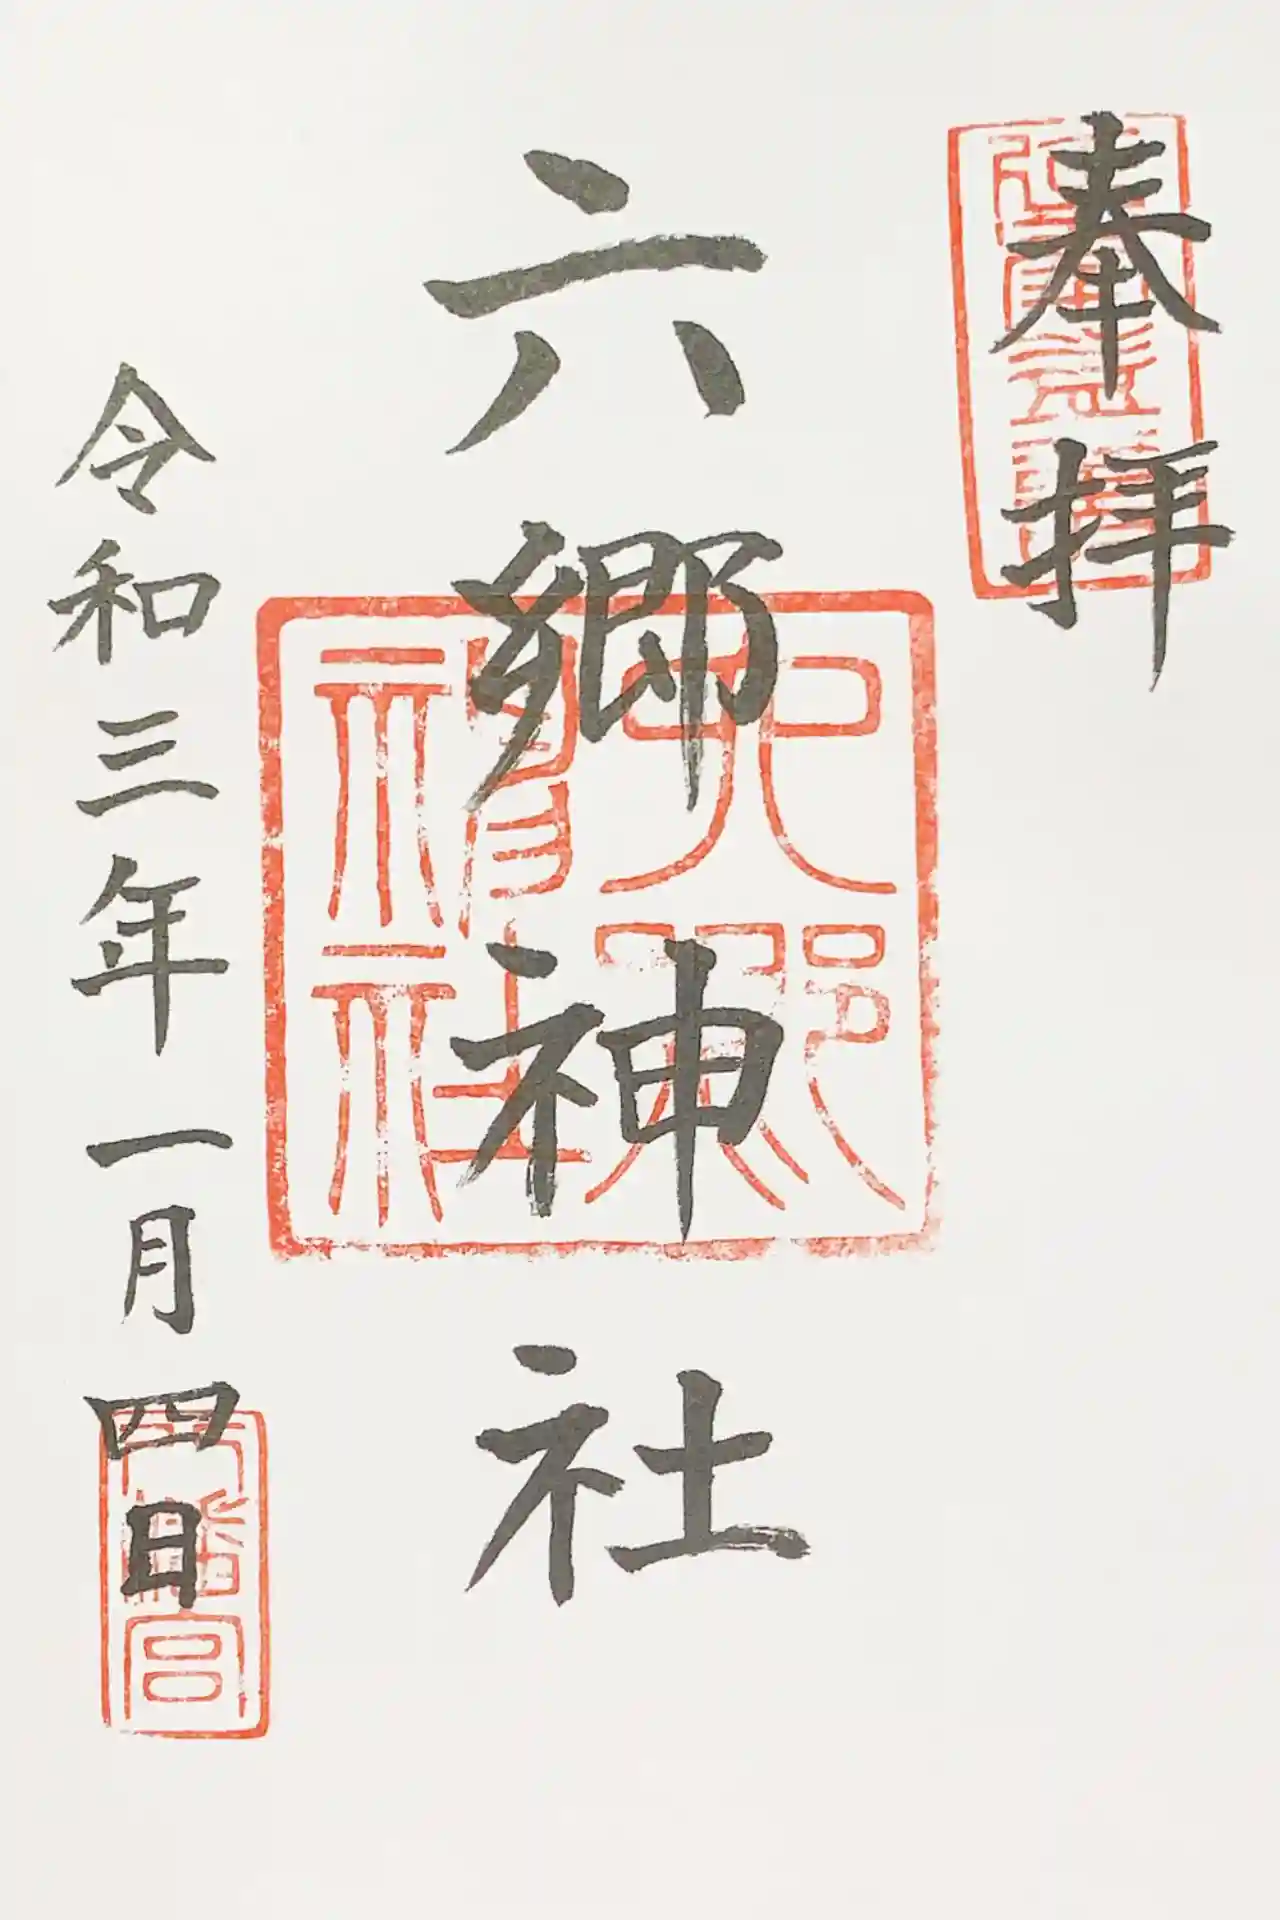 奉拝
六郷神社
六郷神社
令和三年一月四日
八幡宮